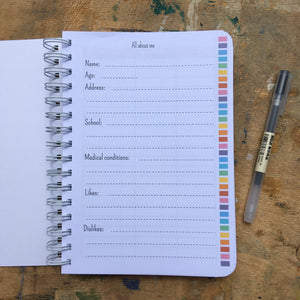 All about me
Name:
Age:
Address:
School:
Medical conditions:
Likes:
Dislikes: